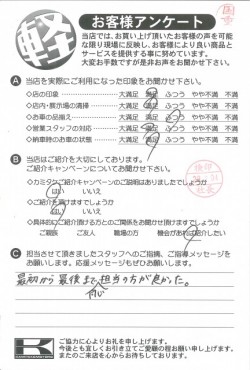 軽
お客様アンケート
当店では、お買い上げ頂いたお客様の声を可能
な限り現場に反映し、お客様により良い商品と
サービスを提供する事に努めています。
大変お手数ですが是非お声をお聞かせ下さい。
A 当店を実際にご利用になった印象をお聞かせ下さい。
◇店の印象 大満足 満足 ふつう やや不満 不満
◇店内・展示場の清掃 大満足 満足 ふつう やや不満 不満
◇お車の品揃え 大満足 満足 ふつう やや不満 不満
◇営業スタッフの対応 大満足 満足 ふつう やや不満 不満
◇納車時のお車の状態 大満足 満足 ふつう やや不満 不満
B 当店はご紹介を大切にしております。
ご紹介キャンペーンについてお聞かせ下さい。
◇カミタケご紹介キャンペーンのご説明はありましたでしょうか
はい いいえ
◇ご紹介を頂けますでしょうか
はい いいえ
◇具体的にご紹介頂ける方とのご関係をお聞かせ頂けますでしょうか
ご親族 ご友人 職場の方 機会があれば紹介したい
C 担当させて頂きましたスタッフへのご指摘、ご指導メッセージを
お願いします。応援メッセージもぜひお願いします。
最初から最後まで担当の方が良かった。
K
ご協力に心よりお礼を申し上げます。
今後とも宜しくお引き立てご愛顧の程お願い申し上げます。
またのご来店を心からお待ちしております。